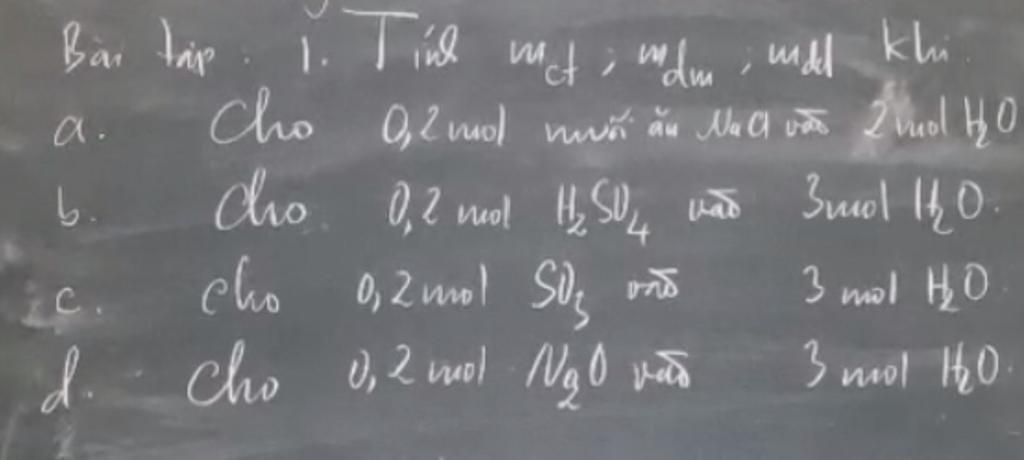 Bài tập : 1. Tính mct ; mdm ; mdd khi
a. Cho 0,2 mol muối ăn NaCl vào 2 mol H2O
b. Cho 0,2 mol H2SO4 vào 3 mol H2O.
c. cho 0,2 mol SO3 vào 3 mol H2O
d. Cho 0,2 mol Na2O vào 3 mol H2O.